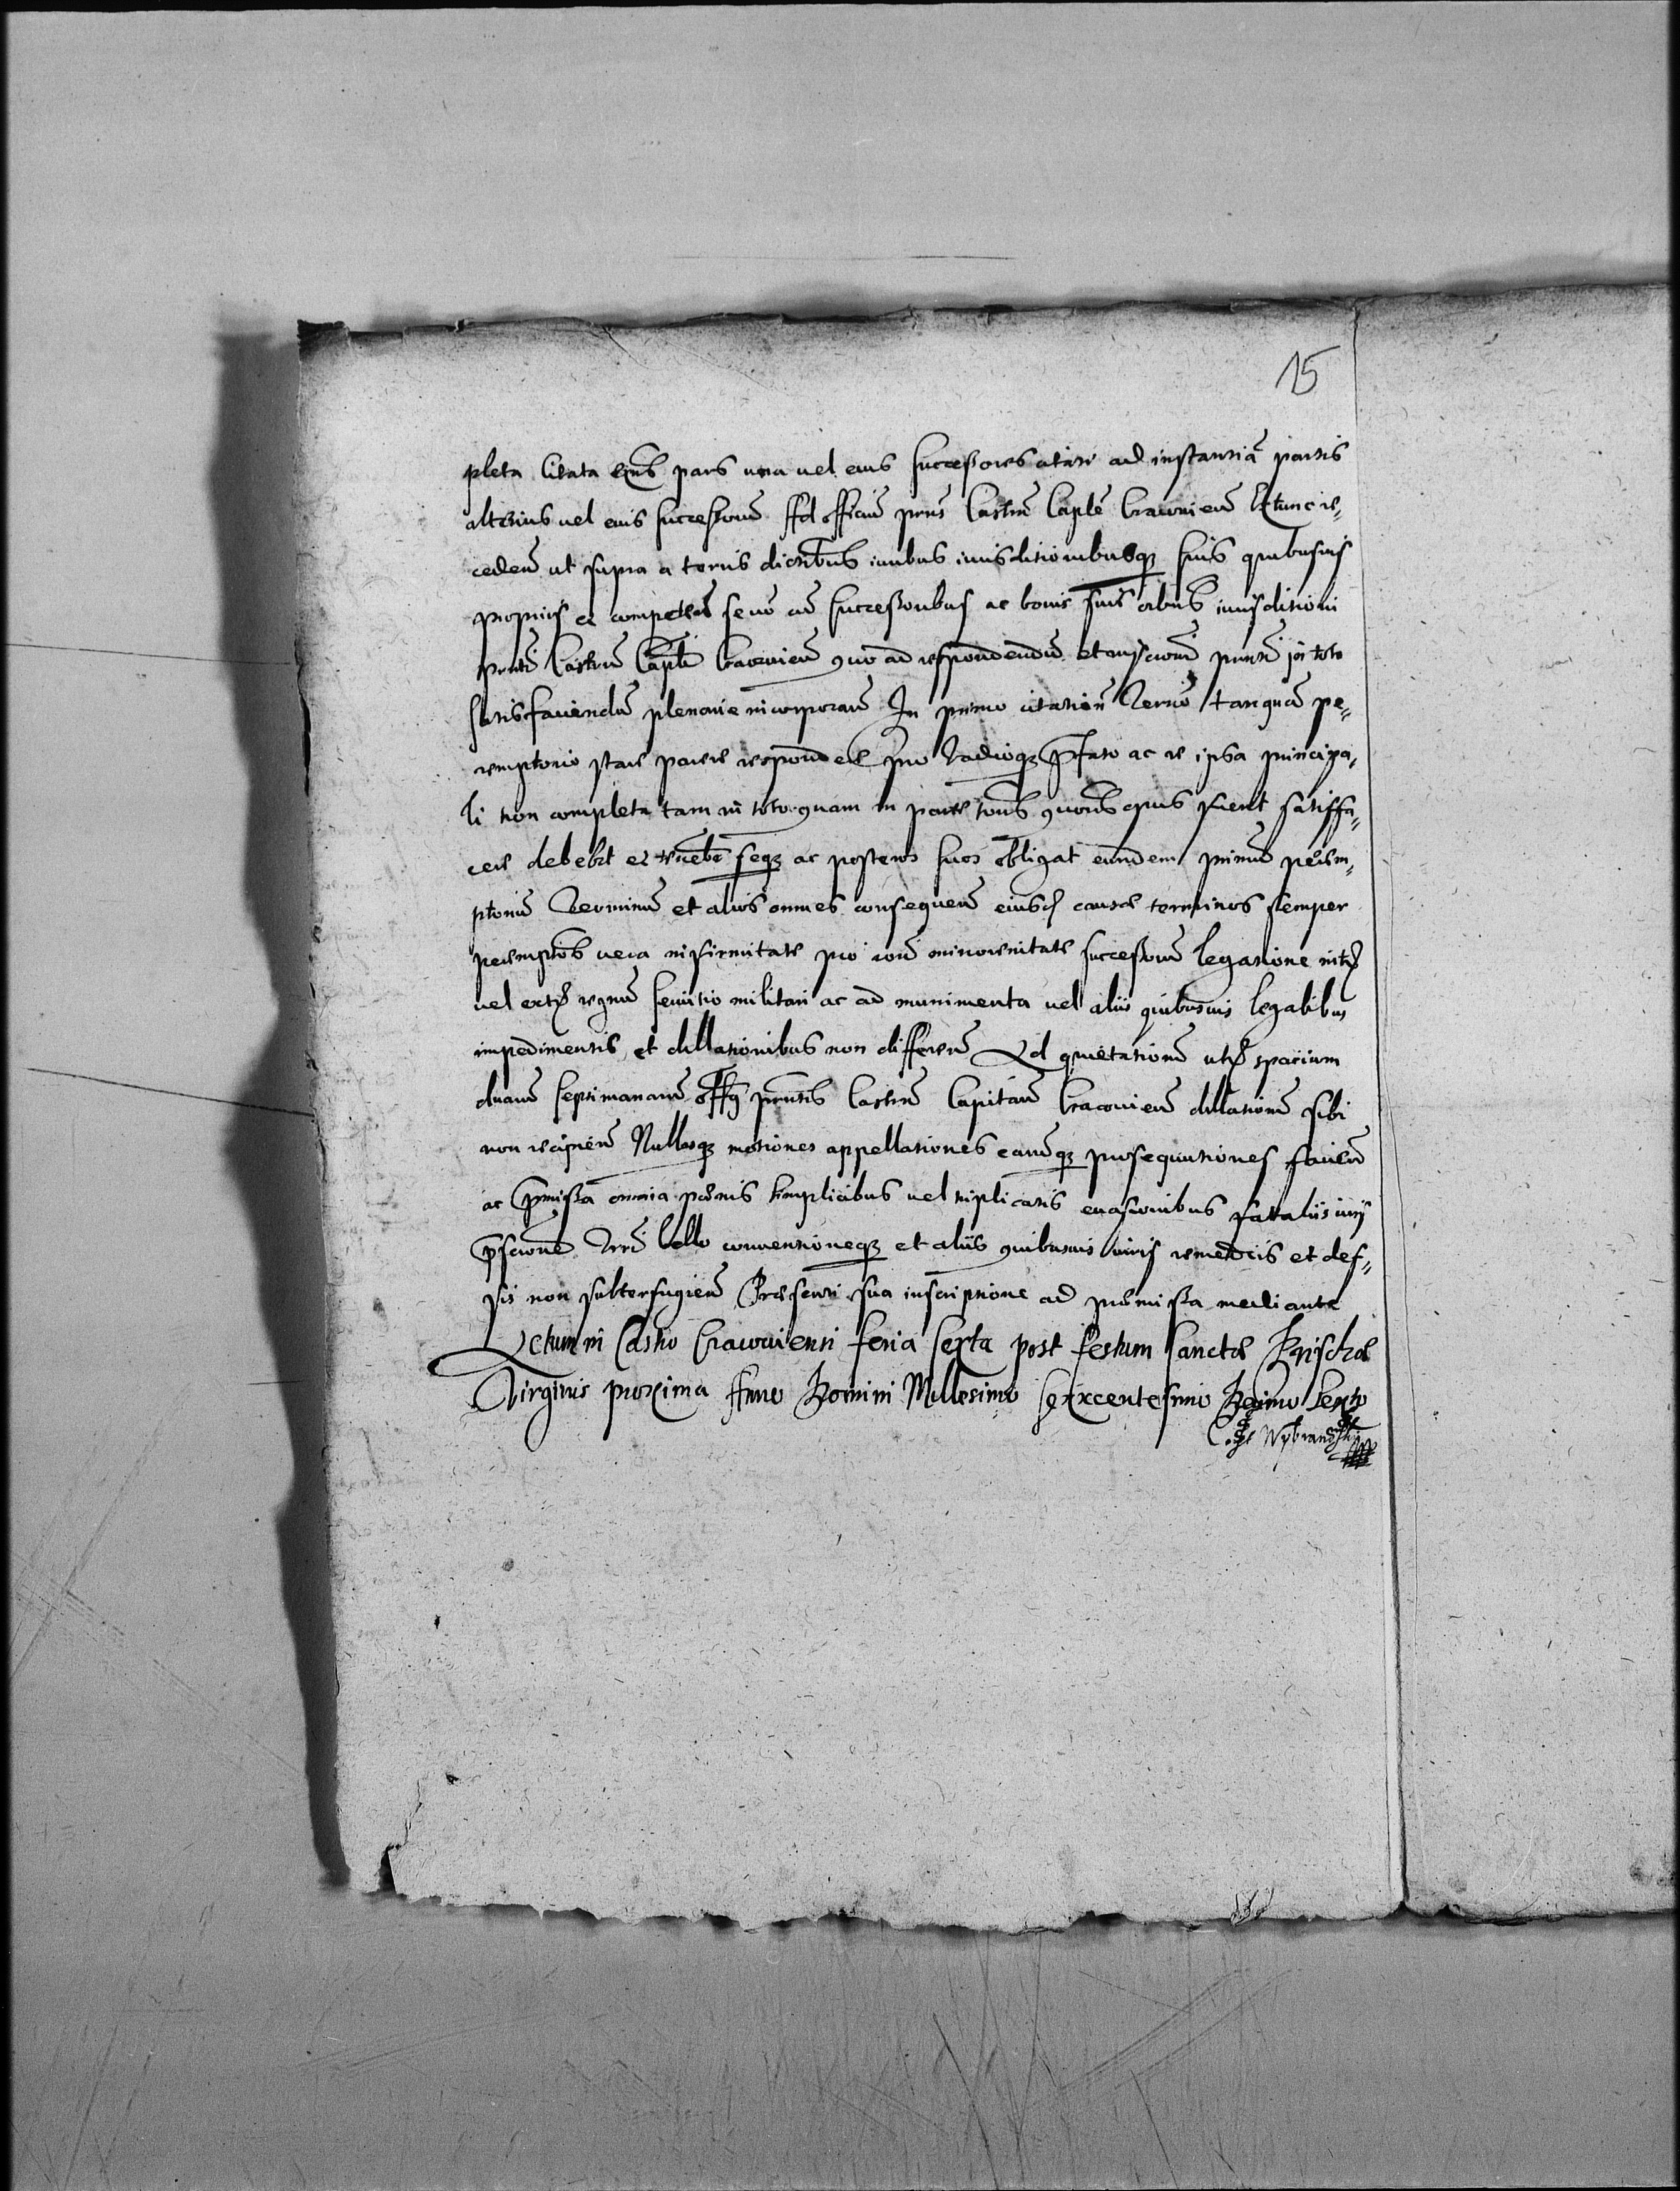 15
pleta citata eius pars una vel eius successores citati ad instantiã partis
alterius vel eius successorũ Ad officiũ pñs Castrñ Captñ Cracovieñ Extunc re-
cedeñ ut supra a terris districtibus iuribus iurisditionibusq; suis quibusvis
proprijs et competeñ seve ac successoribus ac bonis suis oĩbus iurisditioni
prñti Castreñ Captñ Cracovieñ quo ad respondendũ et inscriptioni prñti in toto
satisfaciendũ plenarie incorporañ In primo citationis Termĩo tanquã pe-
remptorio stare parere respondere pro vadioq; p̃fato ac re ipsa principa-
li non completa tam in toto quam in parte toties quoties opus fuerit satisfa-
cere debebit et tenebitur seq; ac posteros suos obligat eundem primũ perem-
ptoriũ Terminũ et alios omnes consequeñ eiusd causæ terminos semper
peremptorios vera infirmitate pro ũ minorennitate successorũ legatione intra
vel extra regnũ servitio militari ac ad munimenta vel aliis quibusvis legalibus
impedimentis et dillationibus non differeñ Ad quietationẽ ultra spacium
duarũ septimanarũ offo prñtis Castreñ Capitañ Cracovieñ dillationẽ sibi
non recipieñ Nullasq; motiones appellationes earũq; prosequutiones facieñ
ac p̃missa omnia pœnis simplicibus vel triplicatis evasionibus fattaliis iuris
p̃scriptione Trrũ bello conventioneq; et aliis quibusvis iuris remediis et def-
sis non subterfugieñ Præsenti sua inscriptione ad præmissa mediante
Actum in Castro Cracoviensi feria sexta post festum sanctæ Priscæ
Virginis proxima Anno Domini Millesimo sexcentesimo Decimo Sexto